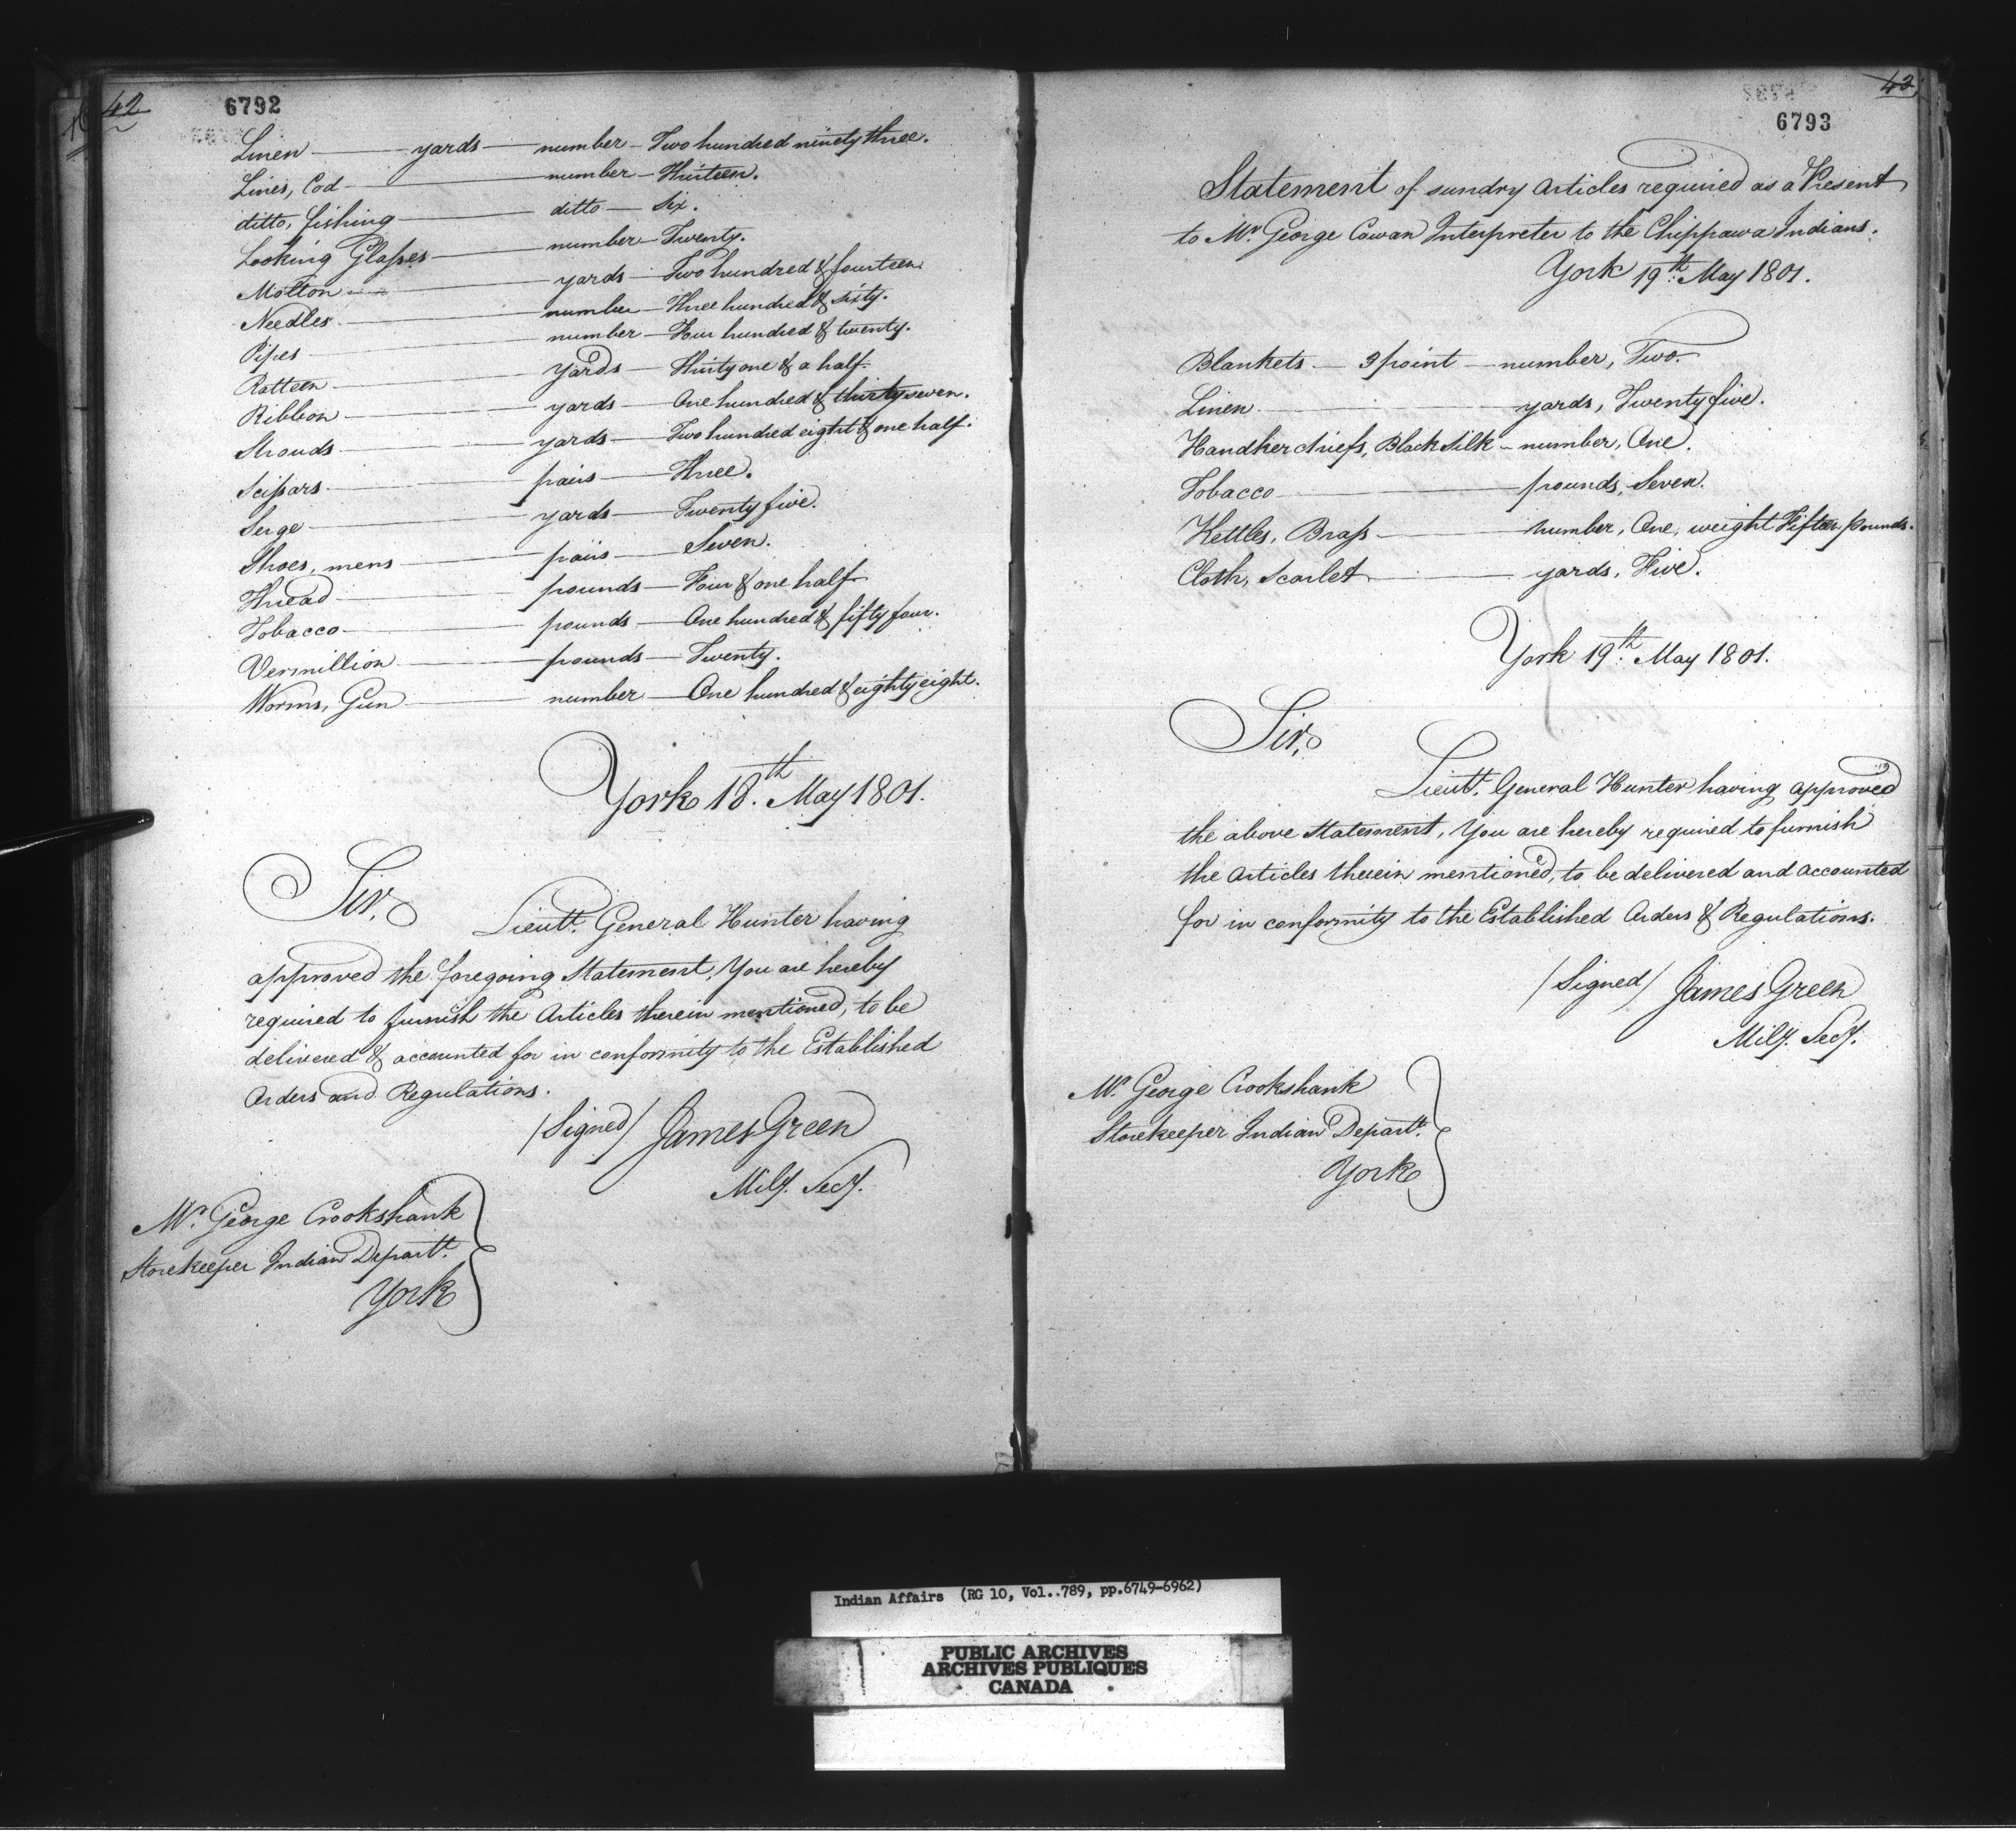 42
6792
Linen yards number Two hundred ninety three.
Lines, Cod number Thirteen.
ditto, fishing ditto Six.
Looking Glasses number Twenty.
Molton yards Two hundred & fourteen
Needles number Three hundred & sixty.
Pipes number Four hundred & twenty.
Ratteen yards Thirty one & a half.
Ribbon yards One hundred & thirty seven.
Strouds yards Two hundred eight & one half.
Scissars pairs Three.
Serge yards Twenty five.
Shoes, mens pairs Seven.
Thread pounds Four & one half
Tobacco pounds One hundred & fifty four.
Vermillion pounds Twenty.
Worms, Gun number One hundred & eighty eight.
York 18th. May 1801.
Sir,
Lieutt. General Hunter having
approved the foregoing Statement, You are hereby
required to furnish the Articles therein mentioned, to be
delivered & accounted for in conformity to the Established
Orders and Regulations.
(Signed) James Green
Mily. Secy.
Mr. George Crookshank
Storekeeper Indian Departt.
York
43
6793
Statement of sundry Articles required as a Present
to Mr. George Cowan Interpreter to the Chippawa Indians.
York 19th. May 1801.
Blankets 3 point number, Two.
Linen yards, Twenty five.
Handkerchiefs, Black Silk number, One.
Tobacco pounds, Seven.
Kettles, Brass number, One, weight Fifteen pounds.
Cloth, Scarlet yards, Five.
York 19th. May 1801.
Sir,
Lieutt. General Hunter having approved
the above Statement, You are hereby required to furnish
the Articles therein mentioned, to be delivered and accounted
for in conformity to the Established Orders & Regulations.
(Signed) James Green
Mily. Secy.
Mr. George Crookshank
Storekeeper Indian Departt.
York
Indian Affairs (RG 10, Vol..789, pp.6749-6962)
PUBLIC ARCHIVES
ARCHIVES PUBLIQUES
CANADA